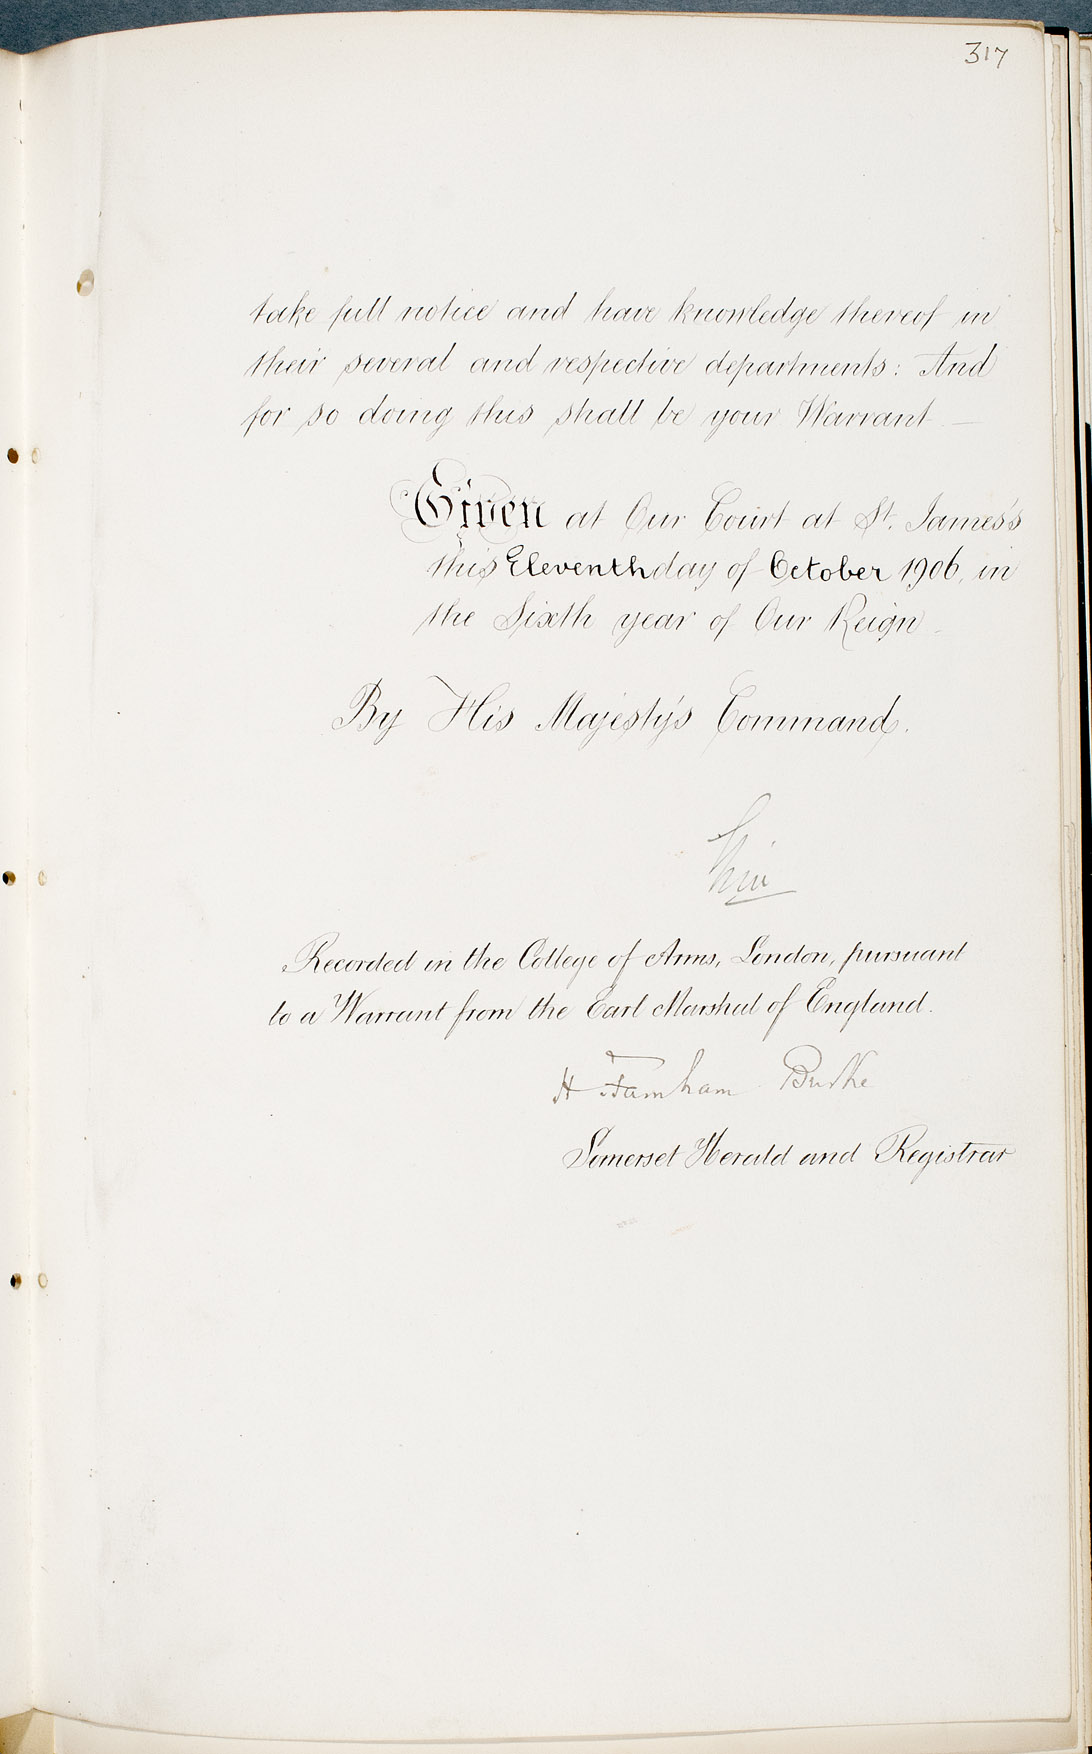 317
take full notice and have knowledge thereof in
their several and respective departments: And
for so doing this shall be your Warrant. —
Given at Our Court at St. James's
this Eleventh day of October 1906, in
the Sixth year of Our Reign.
By His Majesty's Command.
Recorded in the College of Arms, London, pursuant
to a Warrant from the Earl Marshal of England.
H Farnham Burke
Somerset Herald and Registrar